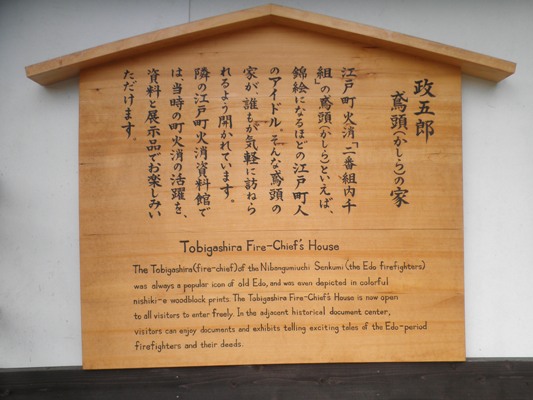 政五郎
鳶頭(かしら)の家
江戸町火消「二番組内千
組」の鳶頭(かしら)といえば、
錦絵になるほどの江戸町人
のアイドル。そんな鳶頭の
家が、誰もが気軽に訪ねら
れるよう開かれています。
隣の江戸町火消資料館で
は、当時の町火消の活躍を、
資料と展示品でお楽しみい
ただけます。
Tobigashira Fire-Chief's House
The Tobigashira (fire-chief) of the Nibangumiuchi Senkumi (the Edo firefighters)
was always a popular icon of old Edo, and was even depicted in colorful
nishiki-e woodblock prints. The Tobigashira Fire-Chief's House is now open
to all visitors to enter freely. In the adjacent historical document center,
visitors can enjoy documents and exhibits telling exciting tales of the Edo-period
firefighters and their deeds.